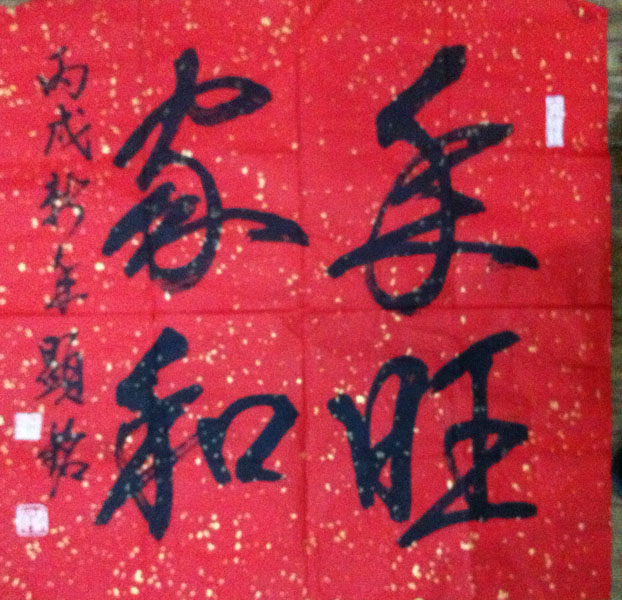 年旺
家和
丙戌新年顯